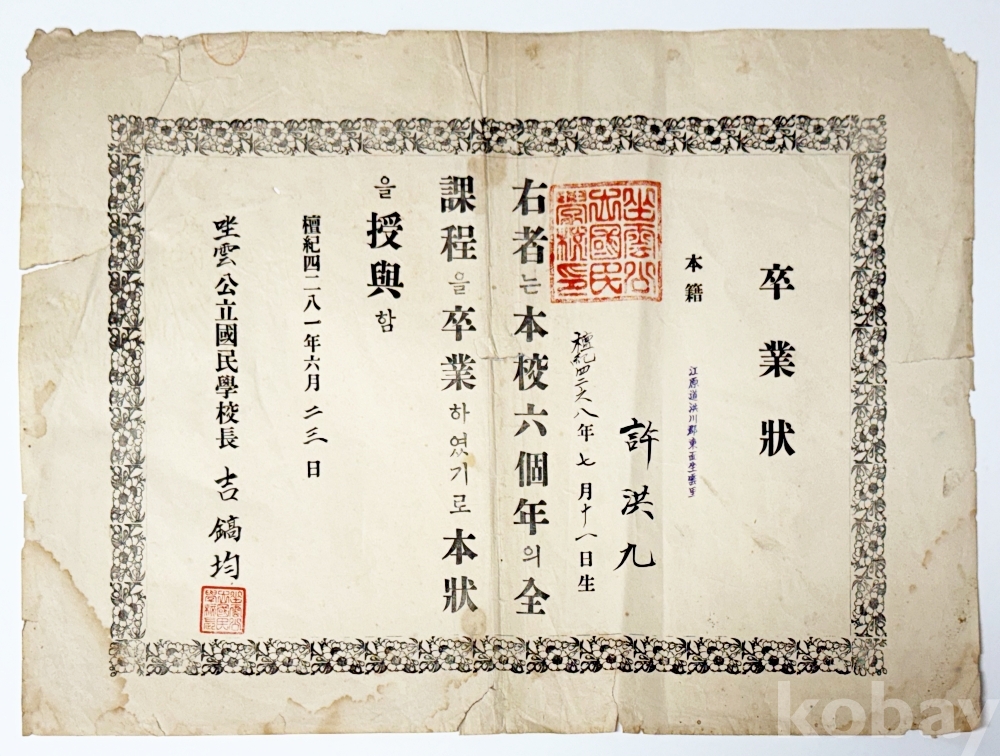 卒業狀
本籍 江原道洪川郡東面坐雲里
許洪九
檀紀四二六八年七月十八日生
右者는本校六個年의全
課程을卒業하였기로本狀
을授與함
檀紀四二八一年六月二三日
坐雲公立國民學校長 吉鎬均
坐雲公立國民學校印
kobay